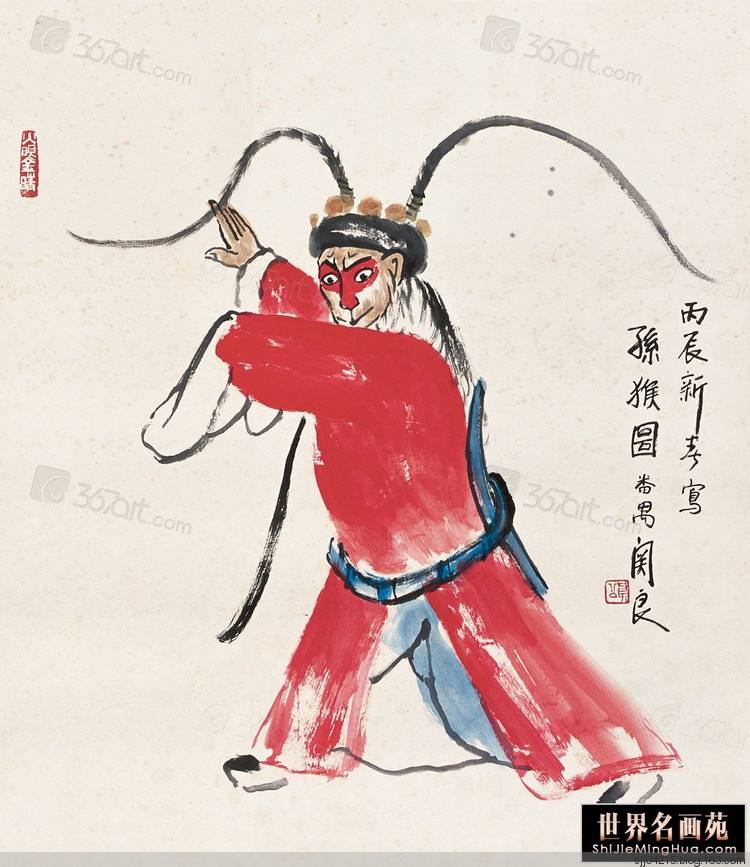 367art.com
367art.com
火眼金睛
丙辰新春寫
孫猴圖 番禺關良
367art.com
367art.com
世界名画苑
ShiJieMingHua.com